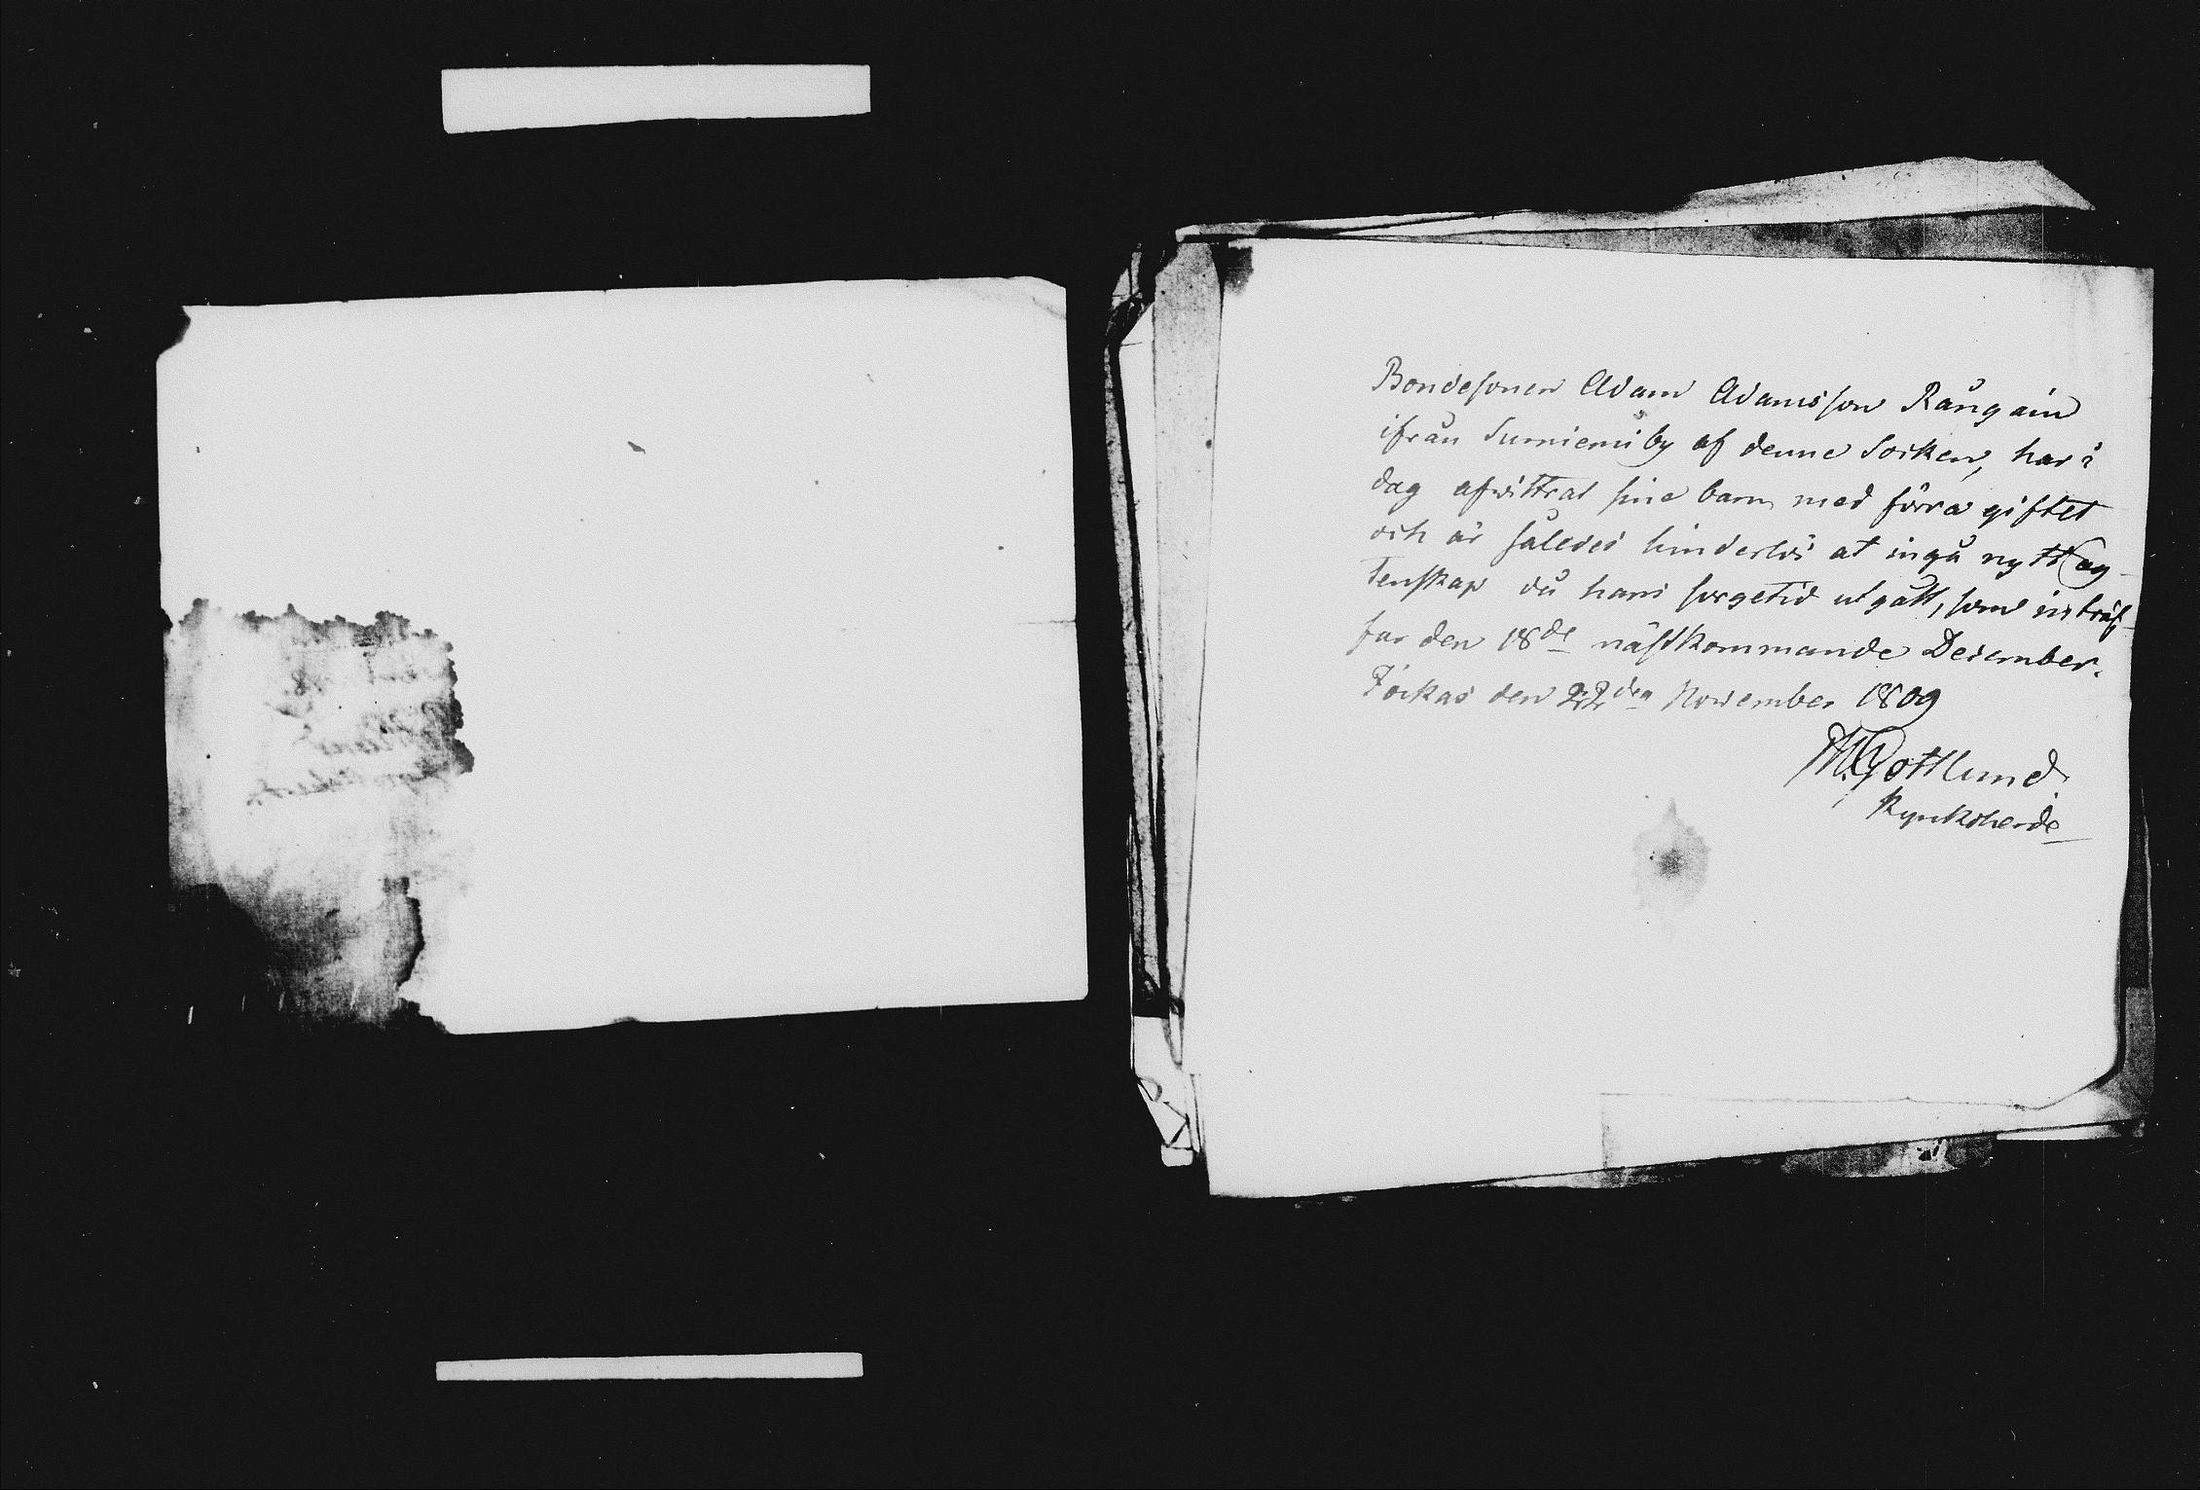 Bondesonen Adam Adamsson Rångain
ifrån Surniemi by af denne Socken, har i
dag afwittrat sine barn med förra giftet
och är således hinderlös at ingå nytt äg-
tenskap då hans sorgetid utgått, som inträf-
far den 18de nästkommande December.
Jockas den 22den November 1809
M. Gottlund.
Kyrkoherde